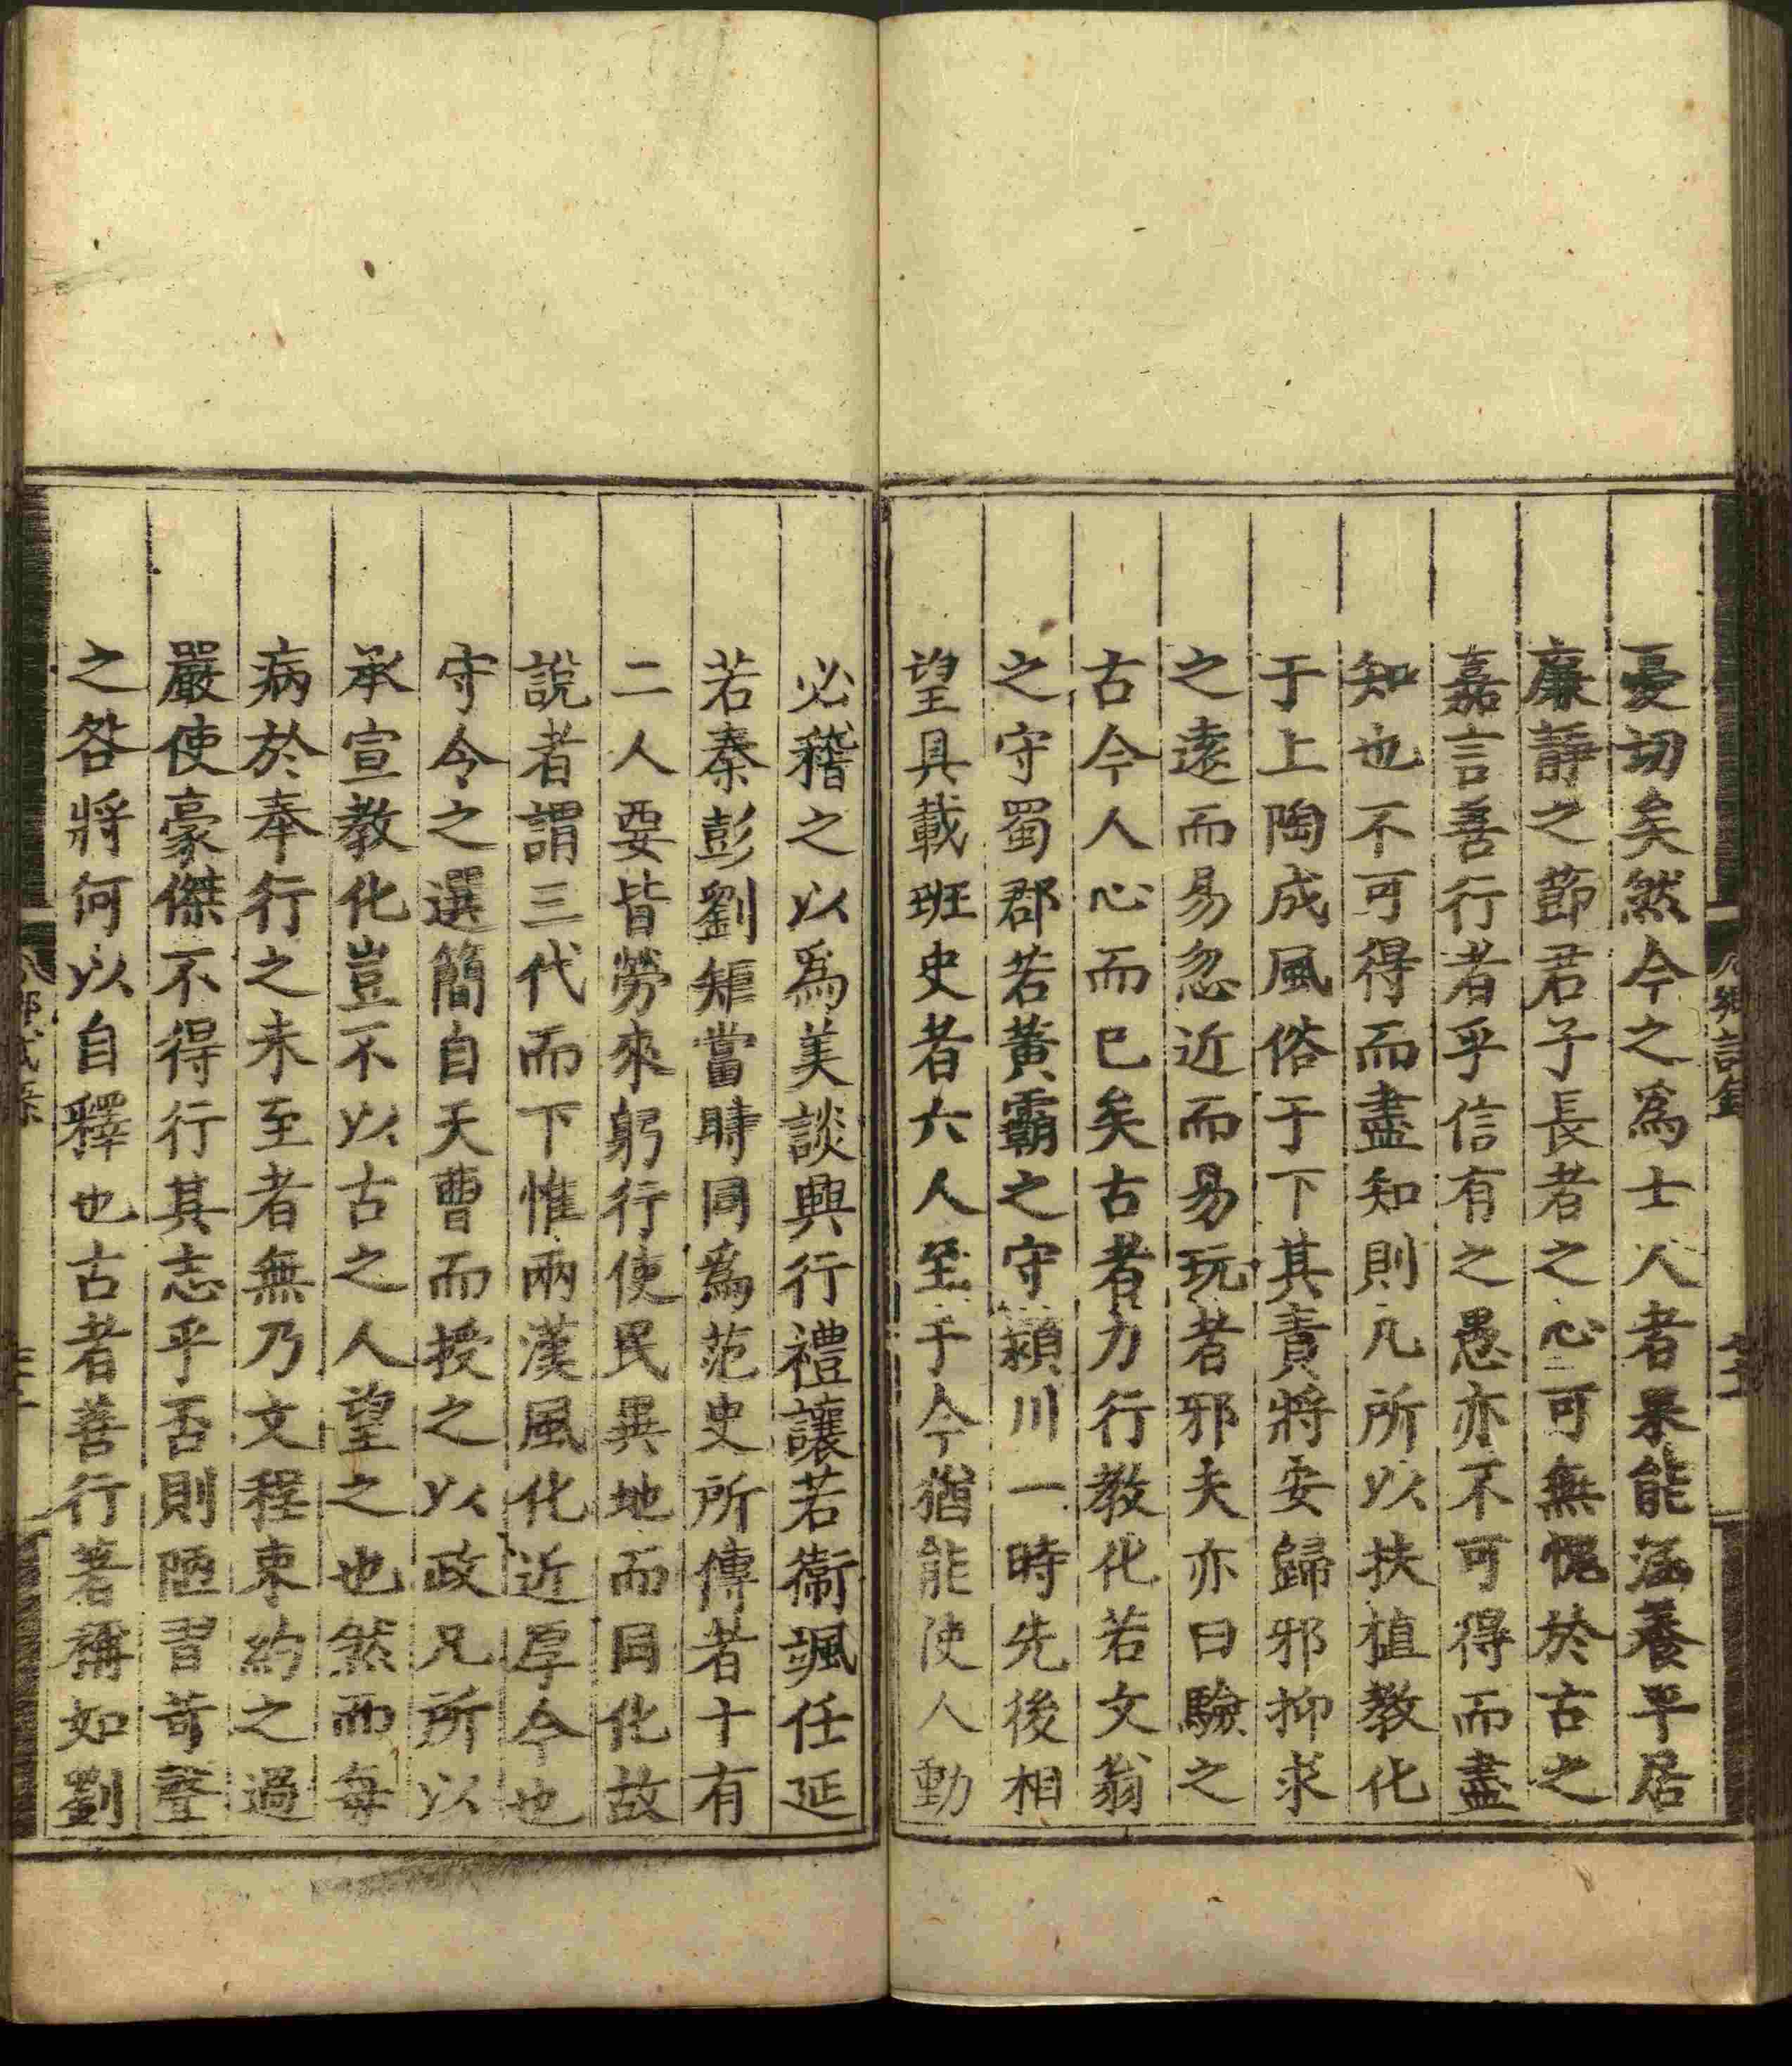 憂切矣然今之爲士人者果能涵養平居
廉靜之節君子長者之心可無愧於古之
嘉言善行者乎信有之愚亦不可得而盡
知也不可得而盡知則凡所以扶植教化
于上陶成風俗于下其責將安歸邪抑求
之遠而易忽近而易玩者邪夫亦曰驗之
古今人心而已矣古者力行教化若文翁
之守蜀郡若黃霸之守潁川一時先後相
望具載班史者六人至于今猶能使人動
必稽之以爲美談興行禮讓若衞颯任延
若秦彭劉矩當時同爲范史所傳者十有
二人要皆勞來躬行使民異地而同化故
說者謂三代而下惟兩漢風化近厚今也
守令之選簡自天曹而授之以政凡所以
承宣教化豈不以古之人望之也然而每
病於奉行之未至者無乃文程束約之過
嚴使豪傑不得行其志乎否則陋習苛聲
之咎將何以自釋也古者善行著稱如劉